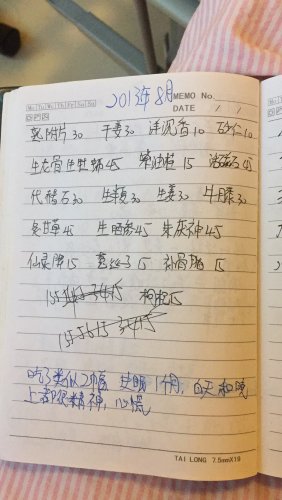 2013年8月
Mo Tu We Th Fr Sa Su
MEMO No.
DATE / /
熟附片30 干姜30 洋沉香10 砂仁10
生龙骨生牡蛎45 紫油桂15 活磁石45
代赭石30 生 30 生姜30 牛膝30
炙甘草45 生晒参45 朱茯神45
仙灵脾15 菟丝子15 补骨脂15
枸杞15
吃了类似2幅 失眠1个月, 白天和晚
上都很精神, 心慌
TAI LONG 7.5mmX19